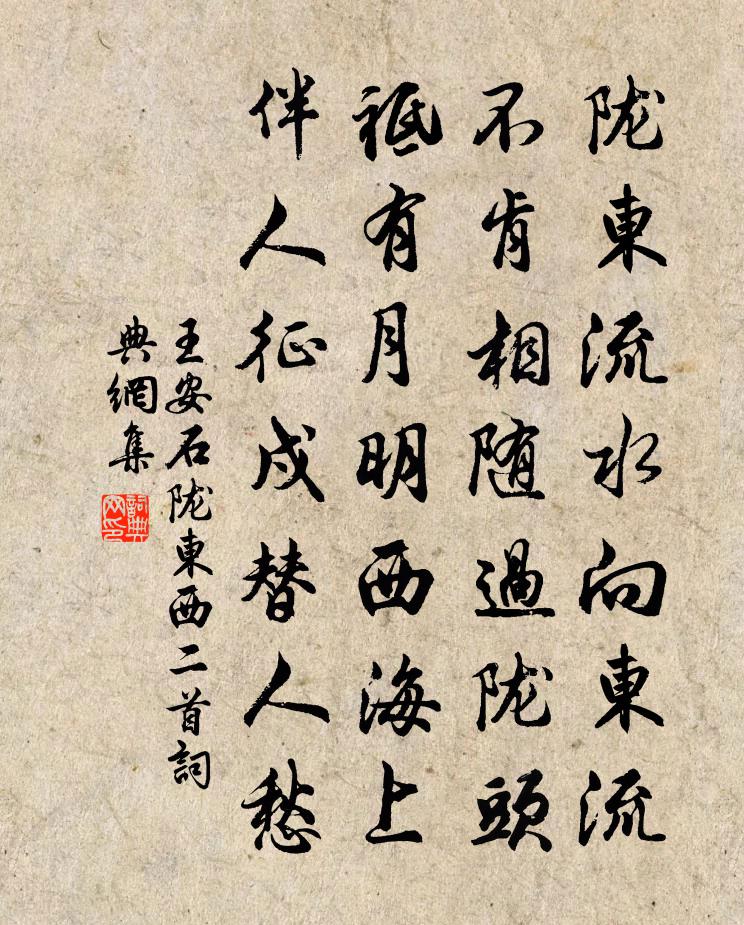 陇東流水向東流
不肯相随過陇頭
祗有月明西海上
伴人征戍替人愁
王安石陇東西二首詞
典網集
詞典
网印